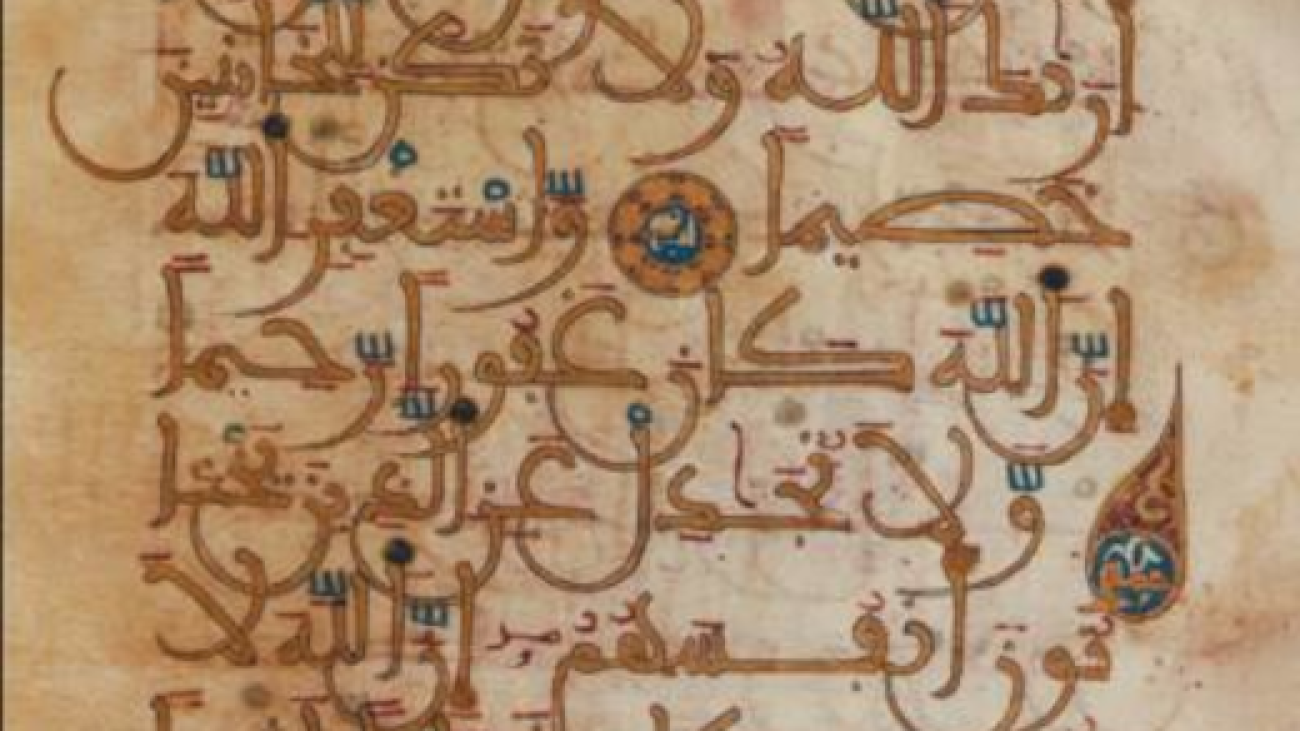 أريك الله ولا تكن للخائنين
خصيما واستغفر الله
إن الله كان غفورا رحيما
ولا تجدل عن الذين يختا
نون أنفسهم إن الله لا